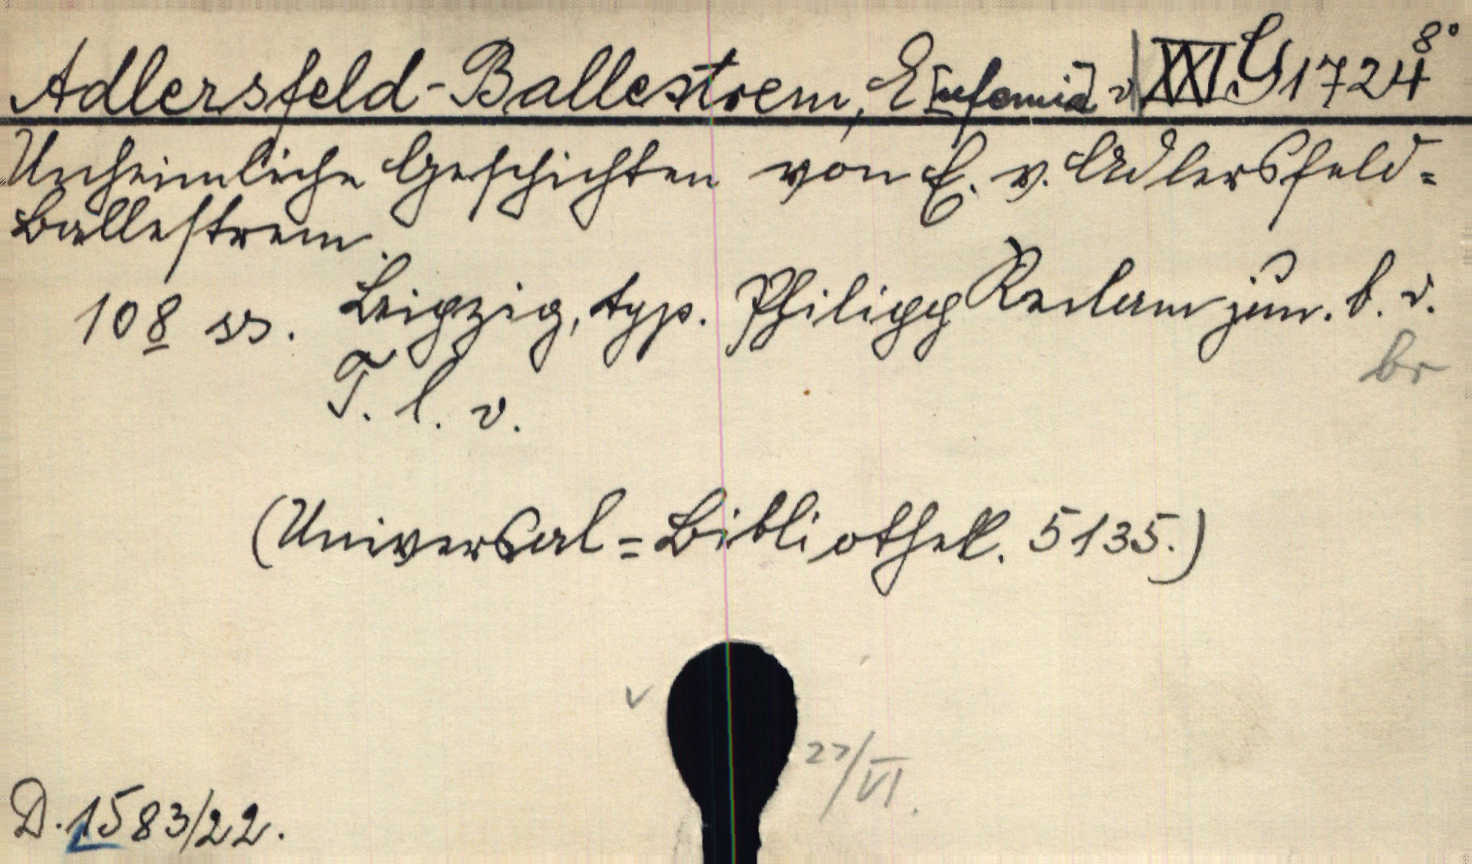 Adlersfeld-Ballestrem, E[ufemia] v XXI.G 1724 8°
Unheimliche Geschichten von E. v. Adlersfeld=
Ballestrem.
108 ss. Leipzig, typ. Philipp Reclam jun. b. d.
br
T. l. v.
(Universal=Bibliothek. 5135.)
27/VI.
D. 1583/22.